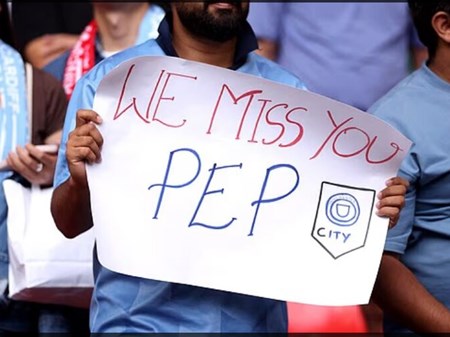 WE MISS YOU
PEP
CITY